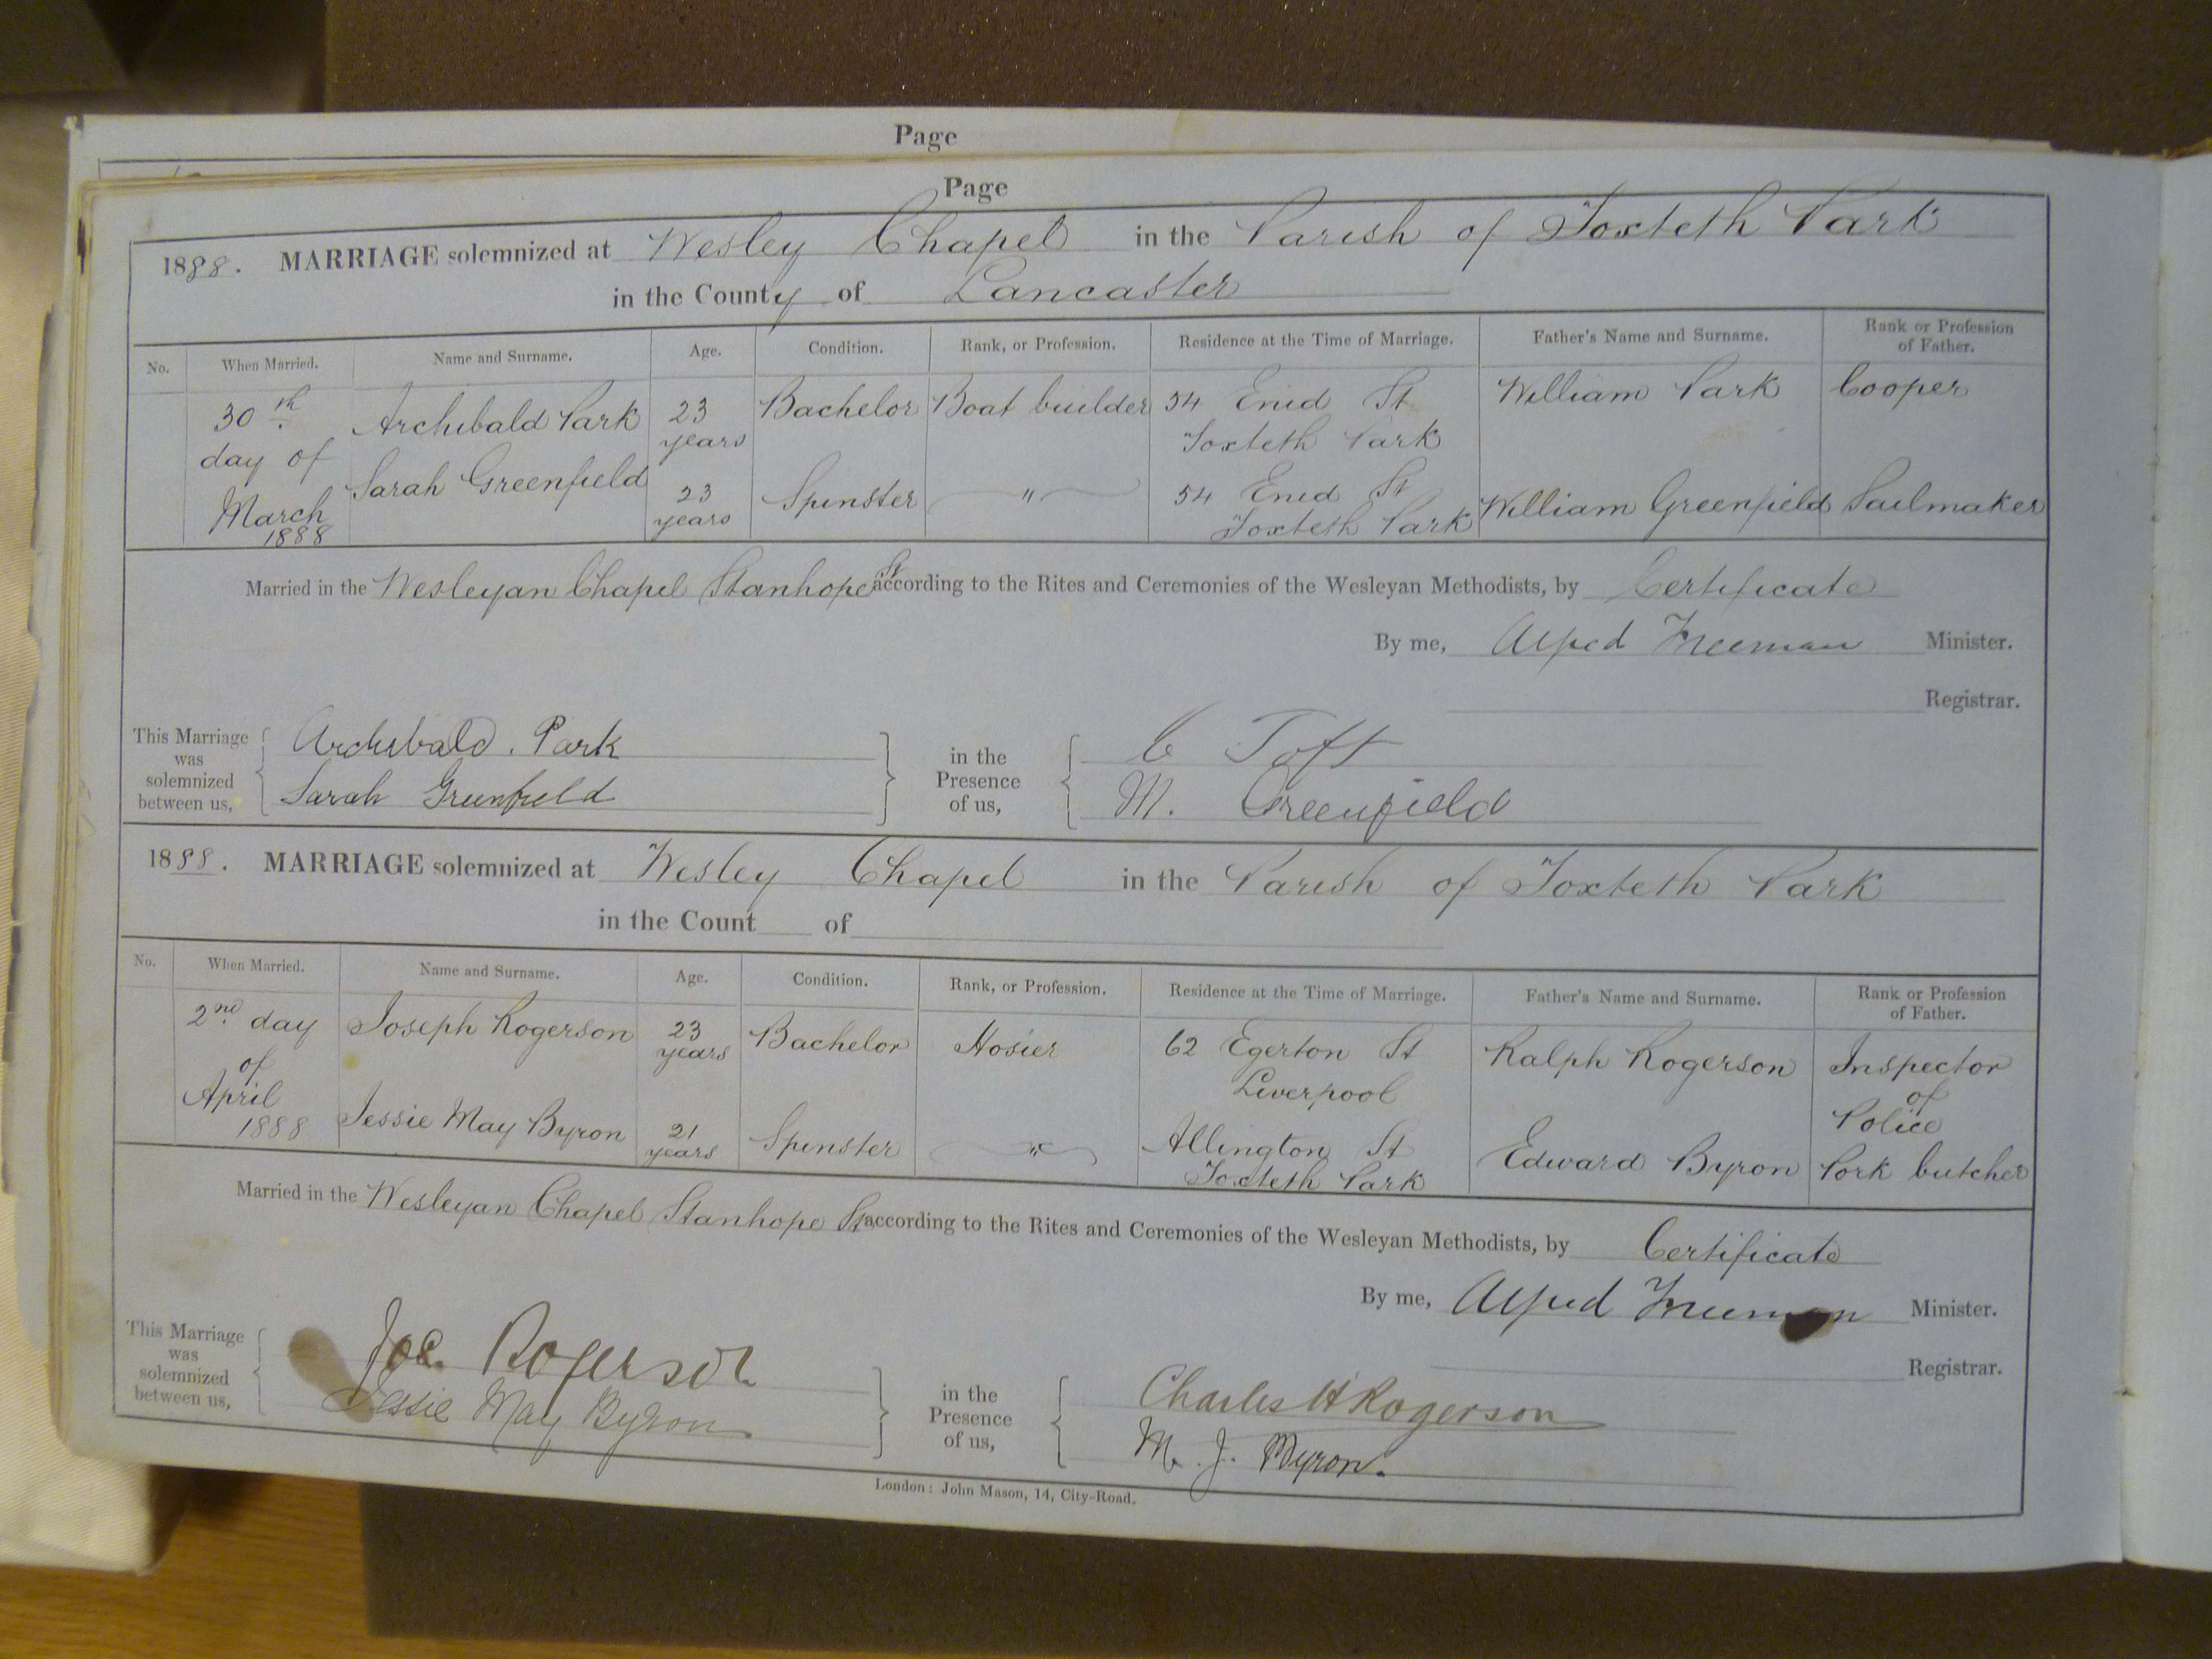 Page
Page
1888. MARRIAGE solemnized at Wesley Chapel in the Parish of Toxteth Park
in the County of Lancaster
No. When Married. Name and Surname. Age. Condition. Rank, or Profession. Residence at the Time of Marriage. Father's Name and Surname. Rank or Profession of Father.
30th day of March 1888 Archibald Park 23 years Bachelor Boat builder 54 Enid St Toxteth Park William Park Cooper
Sarah Greenfield 23 years Spinster " 54 Enid St Toxteth Park William Greenfield Sailmaker
Married in the Wesleyan Chapel Stanhope St according to the Rites and Ceremonies of the Wesleyan Methodists, by Certificate
By me, Alfred Freeman Minister.
Registrar.
This Marriage was solemnized between us, Archibald. Park Sarah Greenfield in the Presence of us, C Toft M. Greenfield
1888. MARRIAGE solemnized at Wesley Chapel in the Parish of Toxteth Park
in the Count of
No. When Married. Name and Surname. Age. Condition. Rank, or Profession. Residence at the Time of Marriage. Father's Name and Surname. Rank or Profession of Father.
2nd day of April 1888 Joseph Rogerson 23 years Bachelor Hosier 62 Egerton St Liverpool Ralph Rogerson Inspector of Police
Jessie May Byron 21 years Spinster " Allington St Toxteth Park Edward Byron Pork butcher
Married in the Wesleyan Chapel Stanhope St according to the Rites and Ceremonies of the Wesleyan Methodists, by Certificate
By me, Alfred Freeman Minister.
Registrar.
This Marriage was solemnized between us, Joe Rogerson Jessie May Byron in the Presence of us, Charles H Rogerson M. J. Byron.
London: John Mason, 14, City-Road.